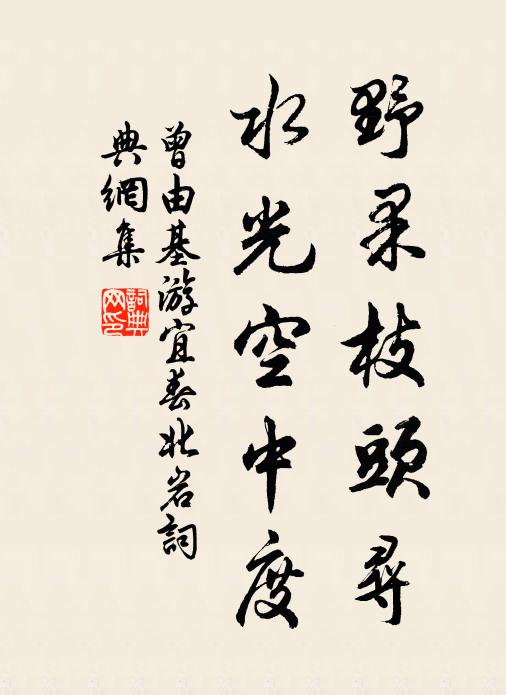 野果枝頭尋
水光空中度
曾由基游宜春北岩詞
典網集
詞典網印